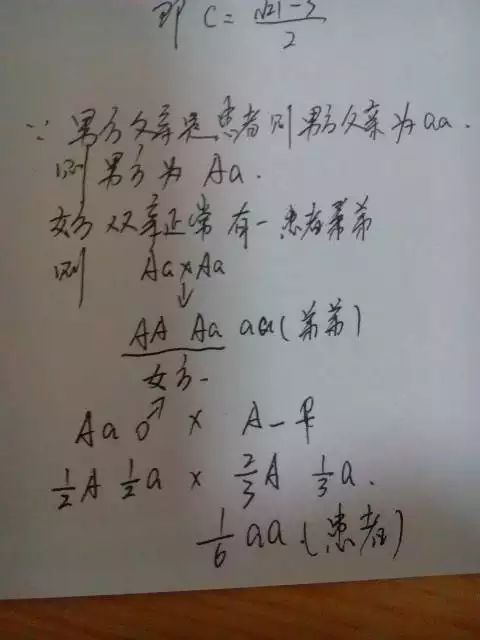 即 C = (√21 - 3)/2
∵ 男方父亲是患者则男方父亲为aa.
则男方为 Aa.
女方双亲正常有一患者弟弟
则 Aa×Aa
↓
AA Aa aa(弟弟)
女方
Aa ♂ × A_ ♀
1/2 A 1/2 a × 2/3 A 1/3 a.
1/6 aa (患者)